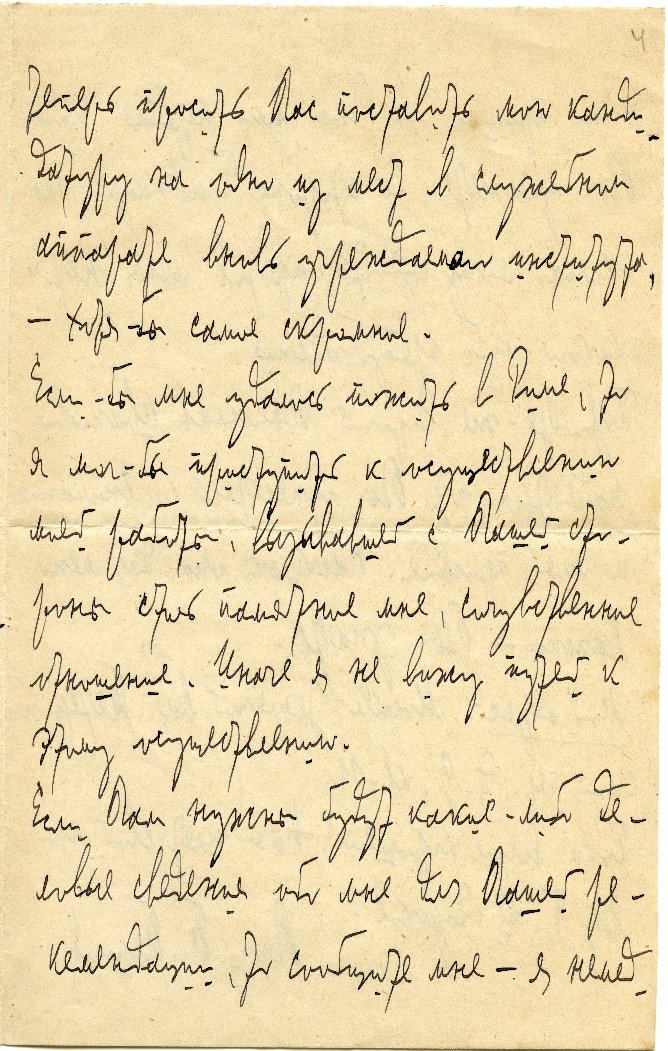 4
теперь просить Вас поставить мою канди-
датуру на одно из мест в служебном
аппарате вновь учреждаемого института,
– хотя-бы самое скромное.
Если-бы мне удалось пожить в Риме, то
я мог-бы приступить к осуществлению
моей работы, вызывавшей с Вашей сто-
роны столь памятное мне, сочувственное
отношение. Иначе я не вижу путей к
этому осуществлению.
Если Вам нужны будут какие-либо де-
ловые сведения обо мне для Вашей ре-
комендации, то сообщите мне – я немед